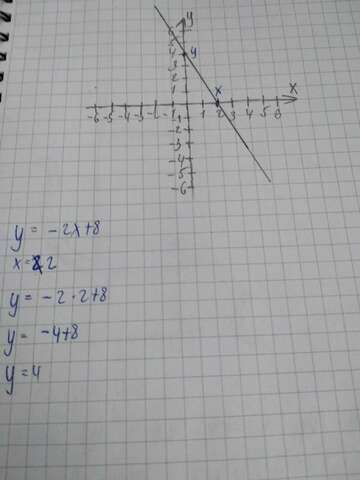 y
6
5
4 y
3
2
1
x x
-6 -5 -4 -3 -2 -1 1 2 3 4 5 6
-1
-2
-3
-4
-5
-6
y = -2x+8
x = 2
y = -2 · 2+8
y = -4+8
y = 4